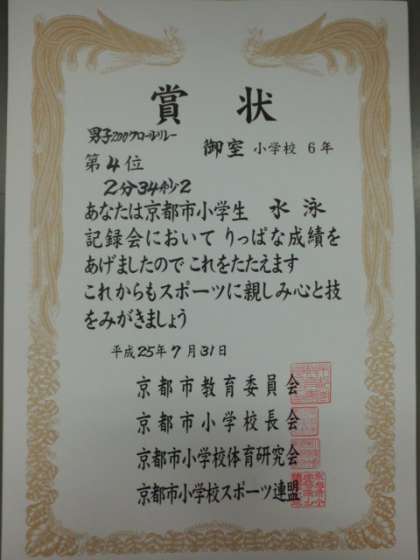 賞状
男子200クロールリレー
御室 小学校 6年
第4位
2分34秒2
あなたは京都市小学生 水泳
記録会において りっぱな成績を
あげましたので これをたたえます
これからもスポーツに親しみ心と技
をみがきましょう
平成25年7月31日
京都市教育委員会
京都市小学校長会
京都市小学校体育研究会
京都市小学校スポーツ連盟